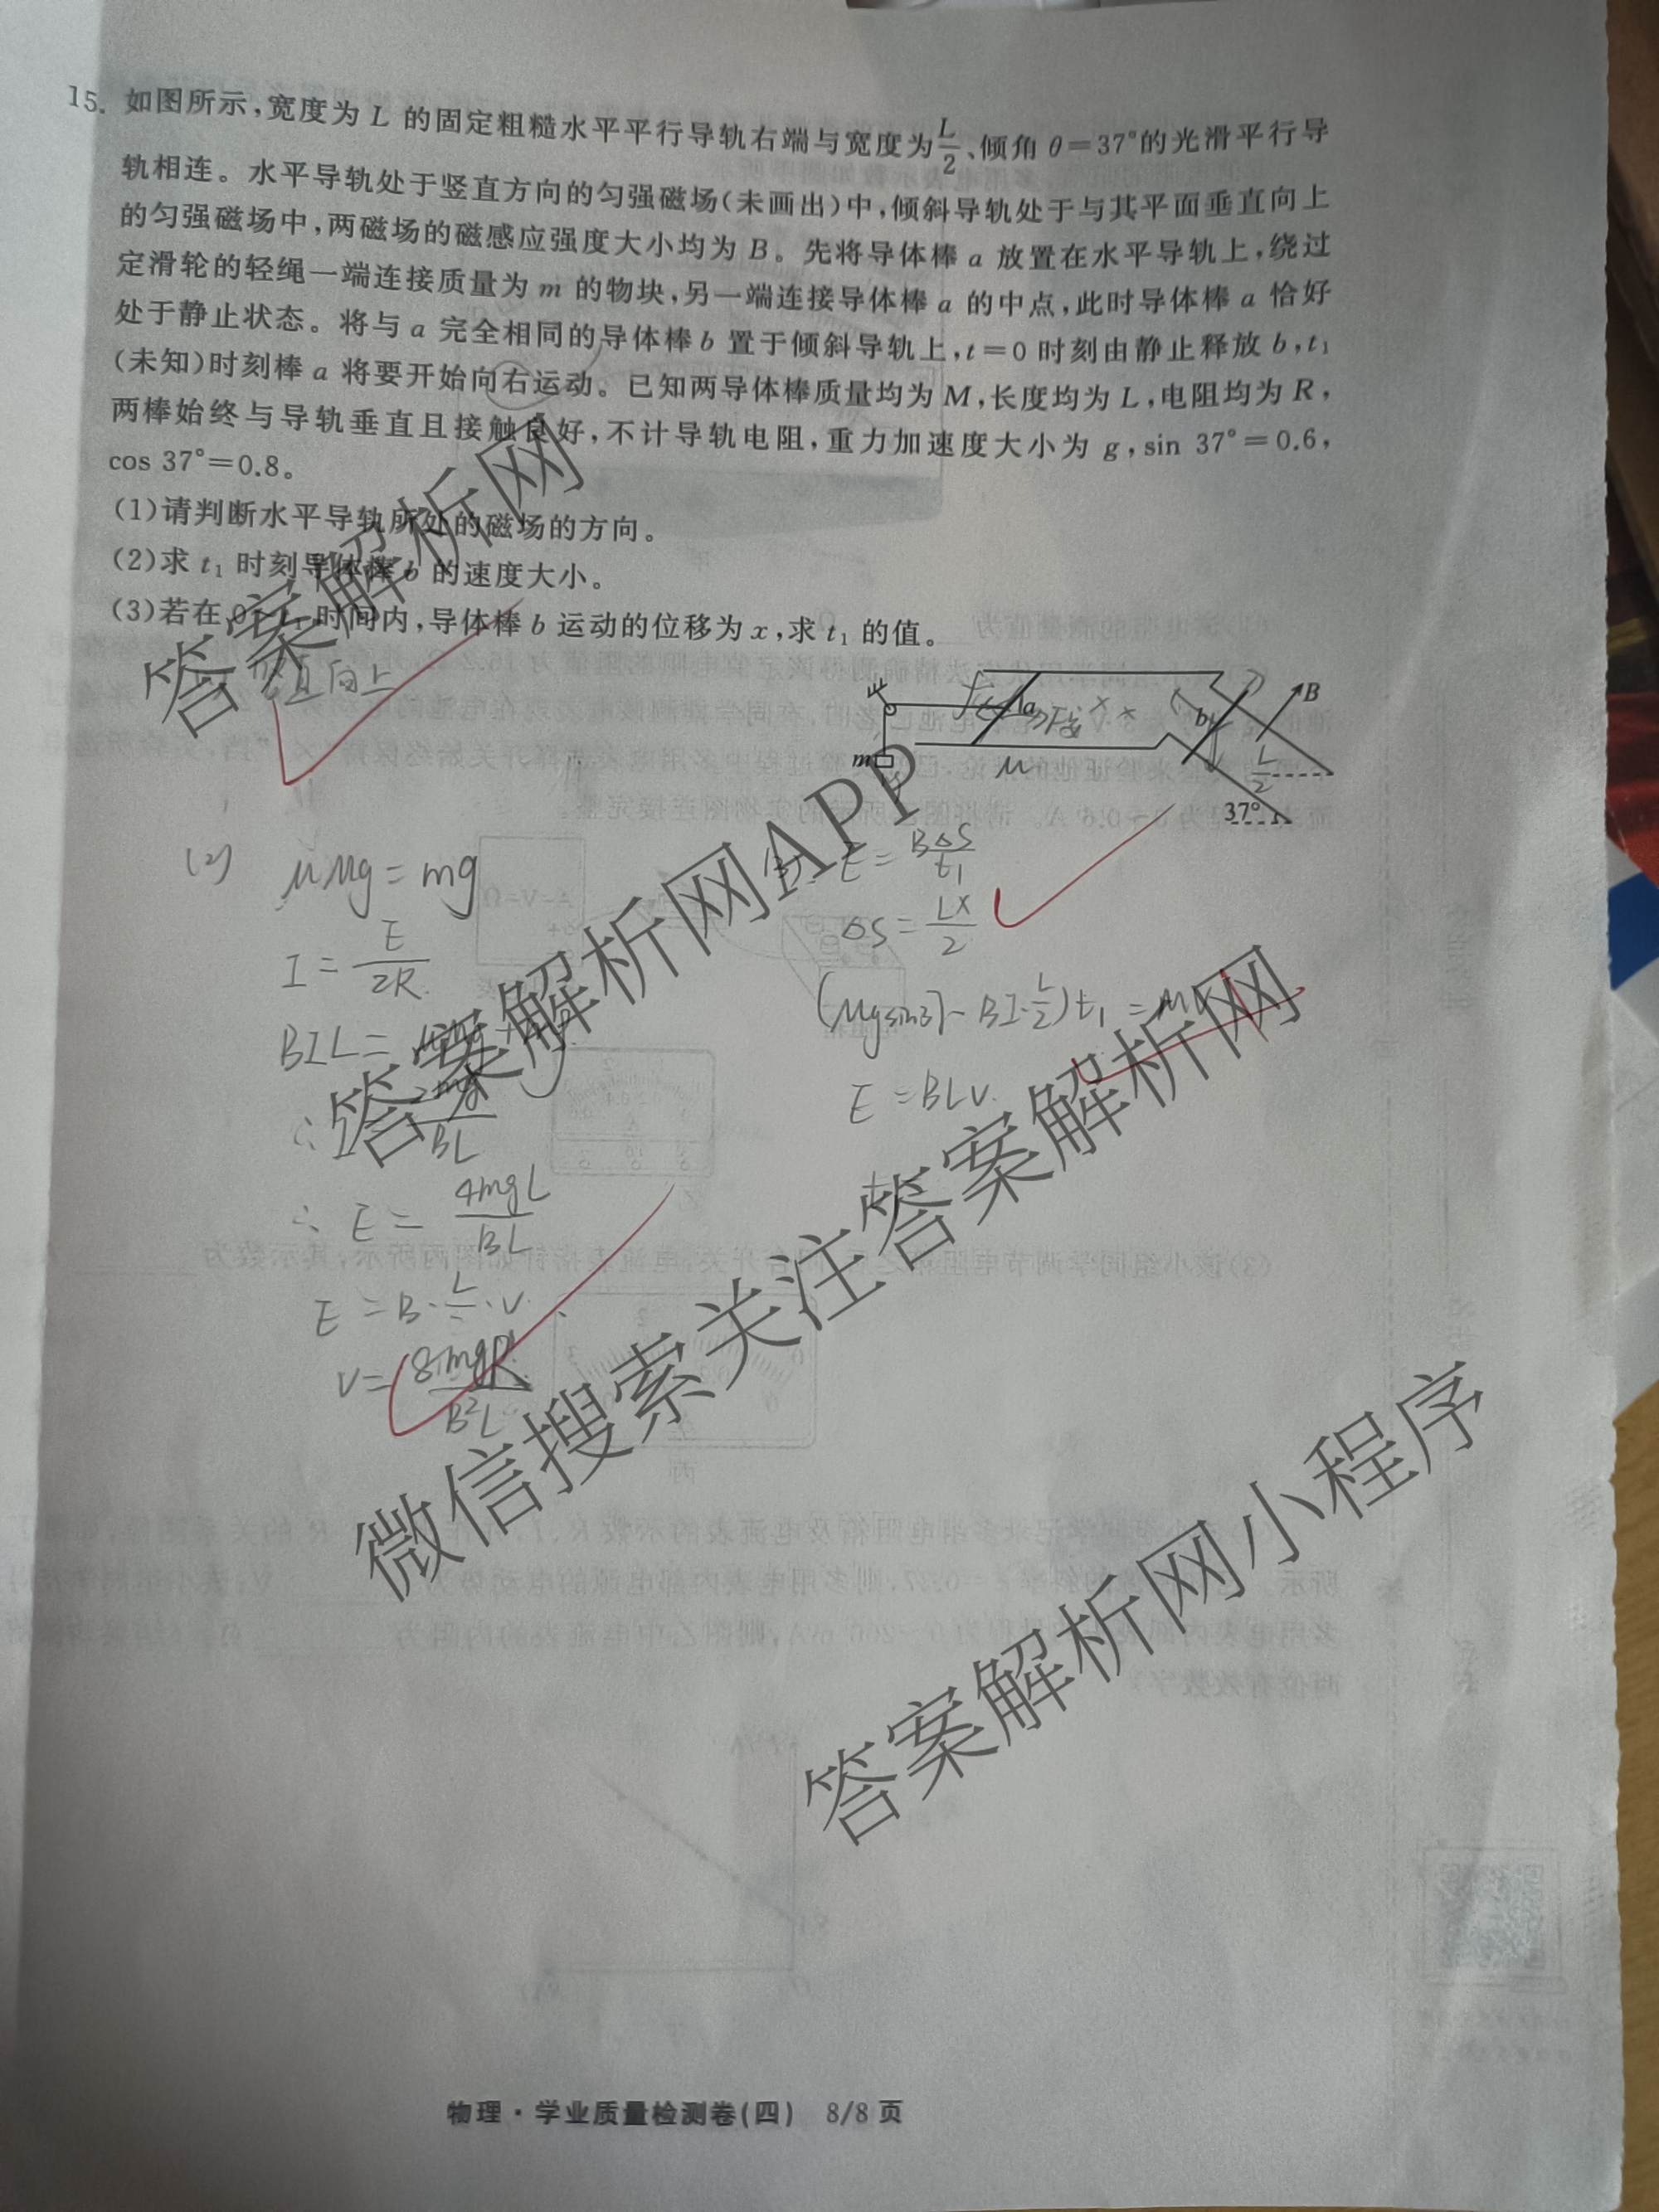 15. 如图所示,宽度为 L 的固定粗糙水平平行导轨右端与宽度为L/2、倾角 θ=37°的光滑平行导
轨相连。水平导轨处于竖直方向的匀强磁场(未画出)中,倾斜导轨处于与其平面垂直向上
的匀强磁场中,两磁场的磁感应强度大小均为 B。先将导体棒 a 放置在水平导轨上,绕过
定滑轮的轻绳一端连接质量为 m 的物块,另一端连接导体棒 a 的中点,此时导体棒 a 恰好
处于静止状态。将与 a 完全相同的导体棒 b 置于倾斜导轨上,t=0 时刻由静止释放 b,t₁
(未知)时刻棒 a 将要开始向右运动。已知两导体棒质量均为 M,长度均为 L,电阻均为 R,
两棒始终与导轨垂直且接触良好,不计导轨电阻,重力加速度大小为 g,sin 37°=0.6,
cos 37°=0.8。
(1)请判断水平导轨所处的磁场的方向。
(2)求 t₁ 时刻导体棒 b 的速度大小。
(3)若在 0~t₁ 时间内,导体棒 b 运动的位移为 x,求 t₁ 的值。
竖直向上
a
b
B
m
μ
L/2
37°
(2) μMg = mg
I = E/2R
BIL =
2mg/BL
∴ E = 4mgL/BL
E = B·L/·v
v = 8mgR/B²L
E = BΔS/t₁
ΔS = LX/2
(Mgsin37 - BI·L/2)t₁ = MV
E = BLV
答案解析网
答案解析网APP
微信搜索关注答案解析网
答案解析网小程序
物理·学业质量检测卷(四) 8/8 页